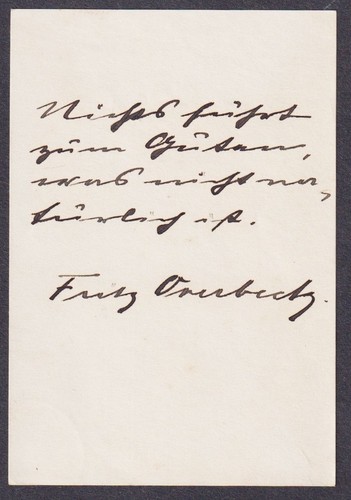 Nichts führt
zum Guten,
was nicht na-
türlich ist.
Fritz Overbeck.